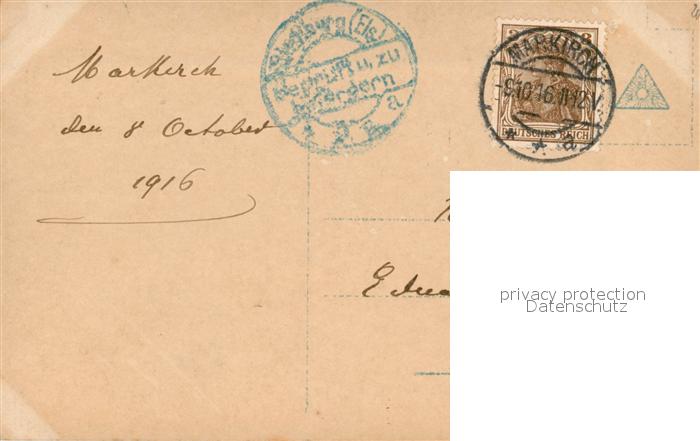 Markirch
den 8 October
1916
Straßburg (Els.)
Geprüft u. zu
befördern
a
3 3
MARKIRCH
-9.10.16.11-12V.
* * a
DEUTSCHES REICH
privacy protection
Datenschutz